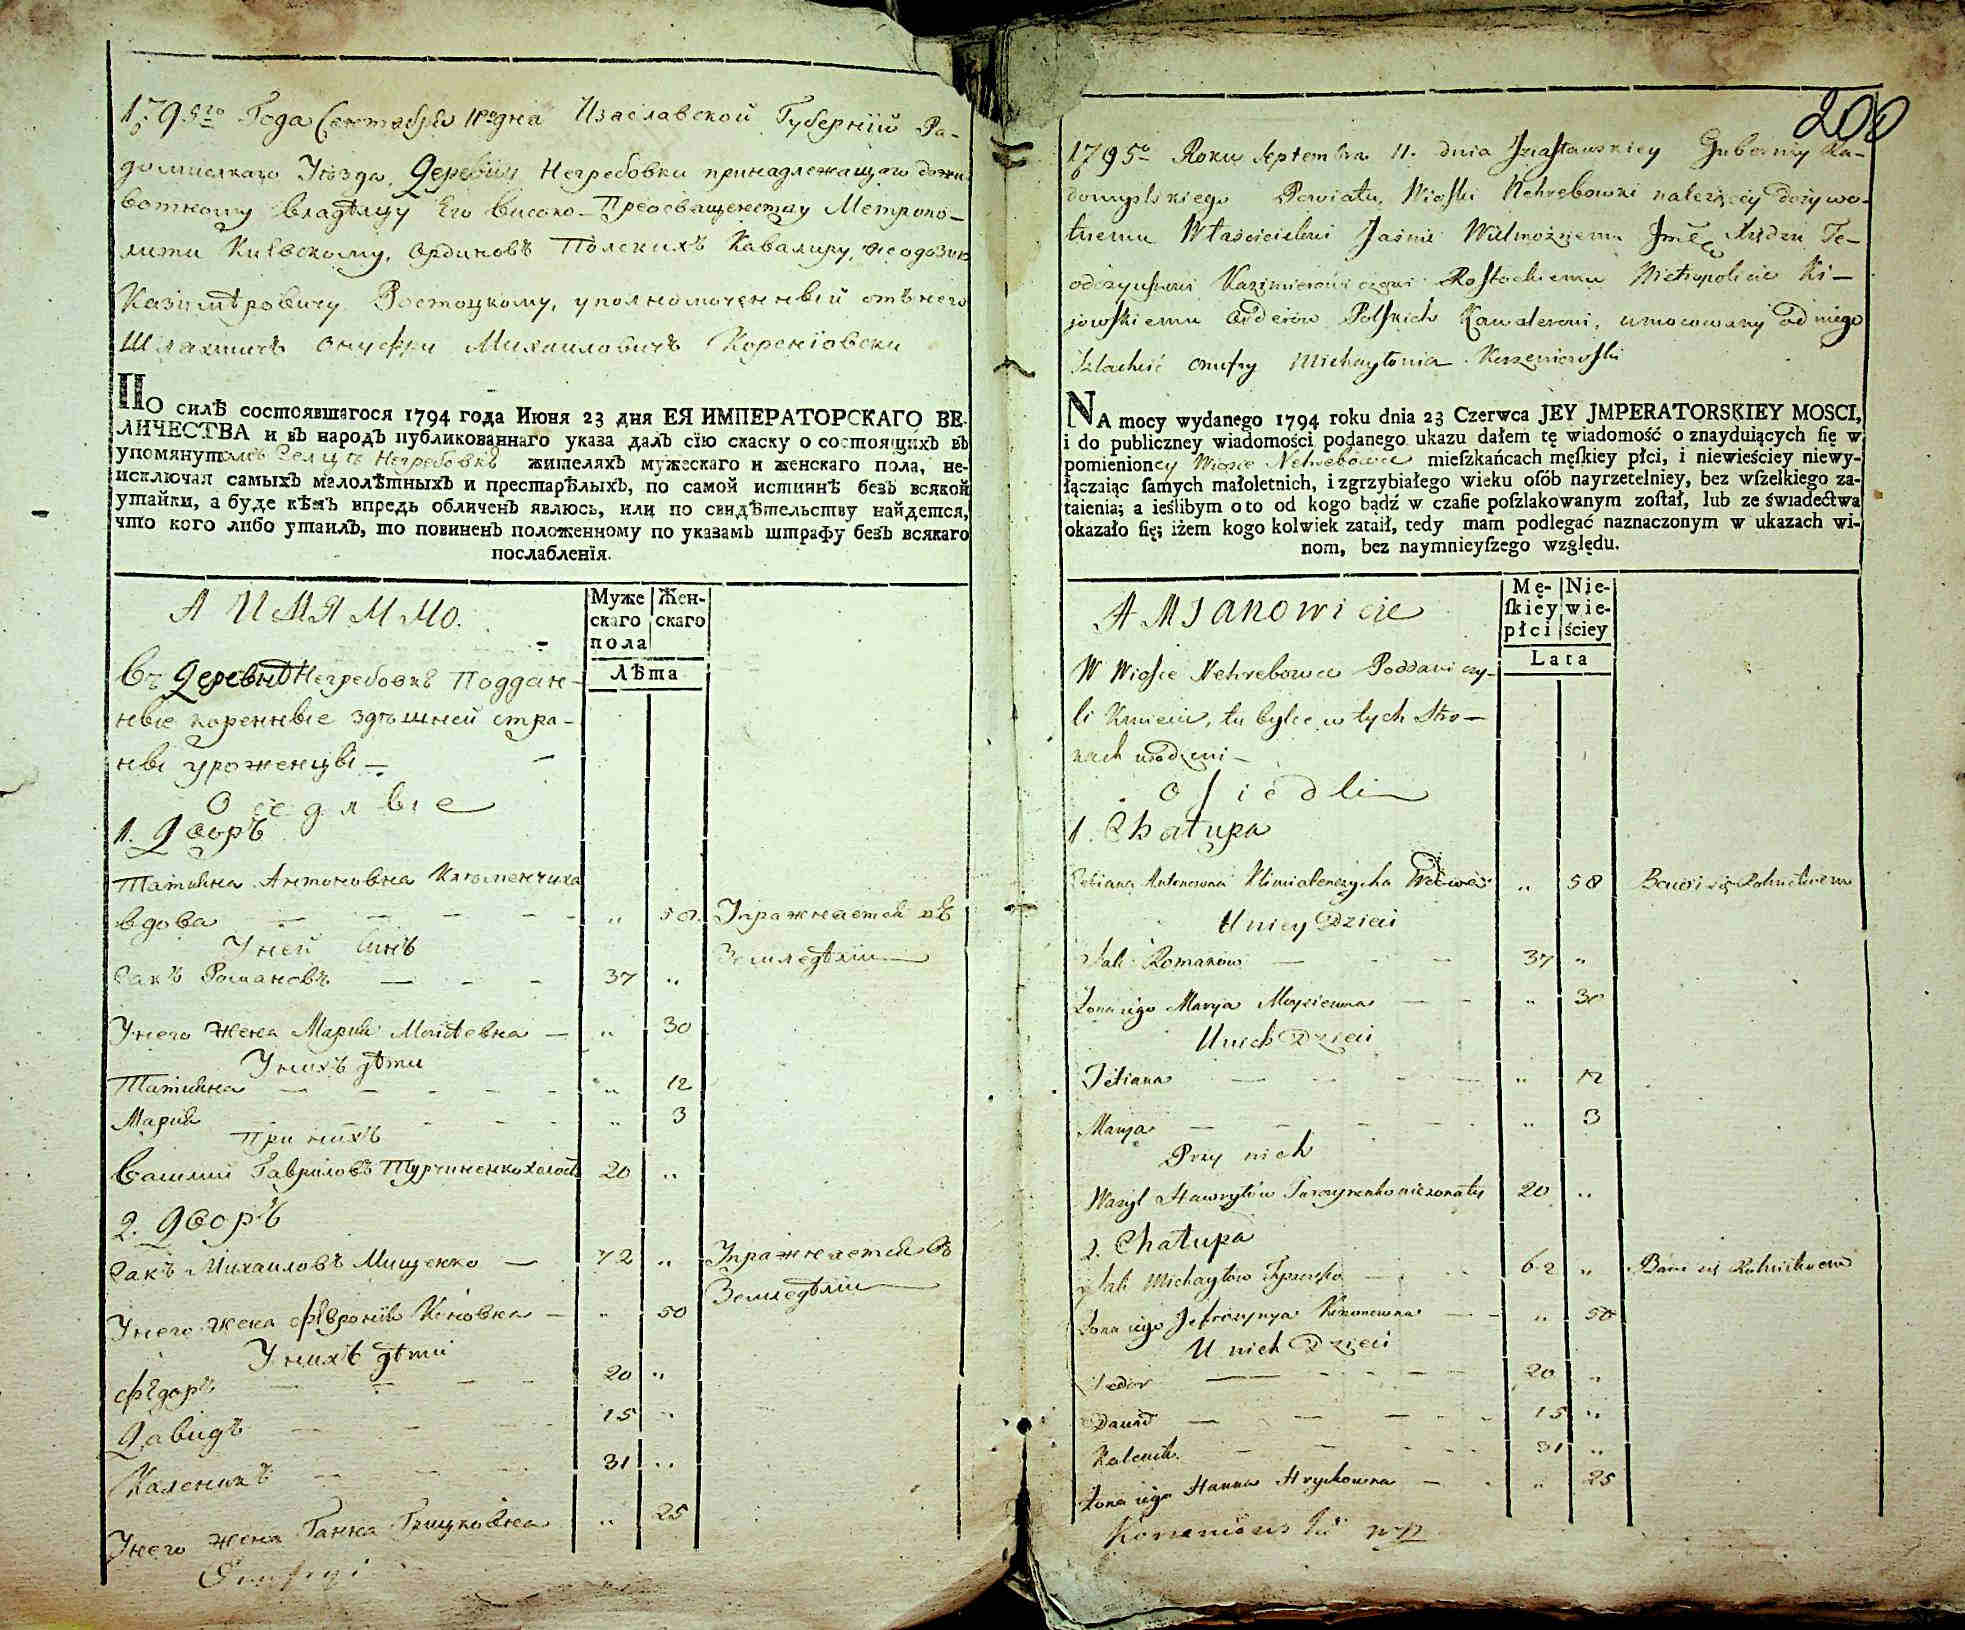 1795го Года Сентября 11го дня Изаславской Губернїи Ра-
домислкаго Уѣзда Деревни Негребовки принадлежащаго дожи
вотному владѣлцу Его високо-Преосвященству Метропо-
лити Киевскому, Ординовъ Полскихъ Кавалиру, Феодозию
Казимѣровичу Ростоцкому, уполномоченный отъ него
Шляхтичъ Онуфри Михаиловичъ Кореніовски
ПО силѣ состоявшагося 1794 года Июня 23 дня ЕЯ ИМПЕРАТОРСКАГО ВЕ-
ЛИЧЕСТВА и въ народъ публикованнаго указа далъ сїю скаску о состоящихъ въ
упомянутомъ Селцѣ Негребовкѣ жителяхъ мужескаго и женскаго пола, не-
исключая самыхъ малолѣтныхъ и престарѣлыхъ, по самой истиннѣ безъ всякой
утайки, а буде кѣмъ впредь обличенъ явлюсь, или по свидѣтельству найдется,
что кого либо утаилъ, то повиненъ положенному по указамъ штрафу безъ всякаго
послабленїя.
А ИМЯММО.
Муже
скаго
пола
Жен-
скаго
Лѣта
Въ Деревнѣ Негребовкѣ Поддан-
ные коренные здѣшней стра-
ны уроженцы
Оседлые
1. Дворъ
Татияна Антоновна Климменчиха
вдова " 58. Упражняется въ
Земледѣлии
У ней Синъ
Сакъ Романовъ 37 "
У него жена Мария Моисѣевна " 30
У нихъ дѣти
Татияна " 12
Мария " 3
При нихъ
Василий Гавриловъ Турчиненко холостъ 20 "
2. Дворъ
Сакъ Михаиловъ Мищенко 72 " Упражняется въ
Земледѣлии
У него жена Феврония Коновна " 50
У нихъ дѣти
Федоръ 20 "
Давидъ 15 "
Каленикъ 31 "
У него жена Ганна Грицковна " 25
Onufryi
200
1795o Roku Septembra 11. dnia Jzasławskiey Guberny Ra-
domyslskiego Powiatu, Wioski Nehrebowki należącey dożywo-
tniemu Właścicielowi Jaśnie Wielmożnemu Jmć Xiędzu Te-
odozyuszowi Kazimierowiczowi Rostockiemu Metropolicie Ki-
jowskiemu Orderów Polskich Kawalerowi, umocowany od niego
Szlachcic Onufry Michayłowicz Korzeniowski
NA mocy wydanego 1794 roku dnia 23 Czerwca JEY JMPERATORSKIEY MOSCI,
i do publiczney wiadomości podanego ukazu dałem tę wiadomość o znayduiących ſię w
pomienioney Wiosce Nehrebowce mieſzkańcach męſkiey płci, i niewieściey niewy-
łączaiąc ſamych małoletnich, i zgrzybiałego wieku oſób nayrzetelniey, bez wſzelkiego za-
taienia; a ieślibym oto od kogo bądź w czaſie poſzlakowanym zoſtał, lub ze świadectwa
okazało ſię; iżem kogo kolwiek zataił, tedy mam podlegać naznaczonym w ukazach wi-
nom, bez naymnieyſzego względu.
A MIANOWICIE
Mę-
ſkiey
płci
Nie-
wie-
ściey
Lata
W Wiosce Nehrebowce Poddani czy-
li Kmiecie, tu bylce w tych Stro-
nach urodzeni
Osiedli
1. Chałupa
Tetiana Antonowna Klimiatenczycha Wdowa " 58 Bawi się Rolnictwem
U niey Dzieci
Sak Romanow 37 "
Żona iego Marya Moyziewna " 30
U nich Dzieci
Tetiana " 12
Marya " 3
Przy nich
Wasyl Hawryłów Turczynenko nieżonaty 20 "
2. Chałupa
Sak Michayłow 62 " Bawi się Rolnictwem
Żona iego Jefrozynya Kononowna " 50
U nich Dzieci
Fedor 20 "
Dawid 15 "
Kalenik 31 "
Żona iego Hanna Hryckowna " 25
Korzeniowski mp